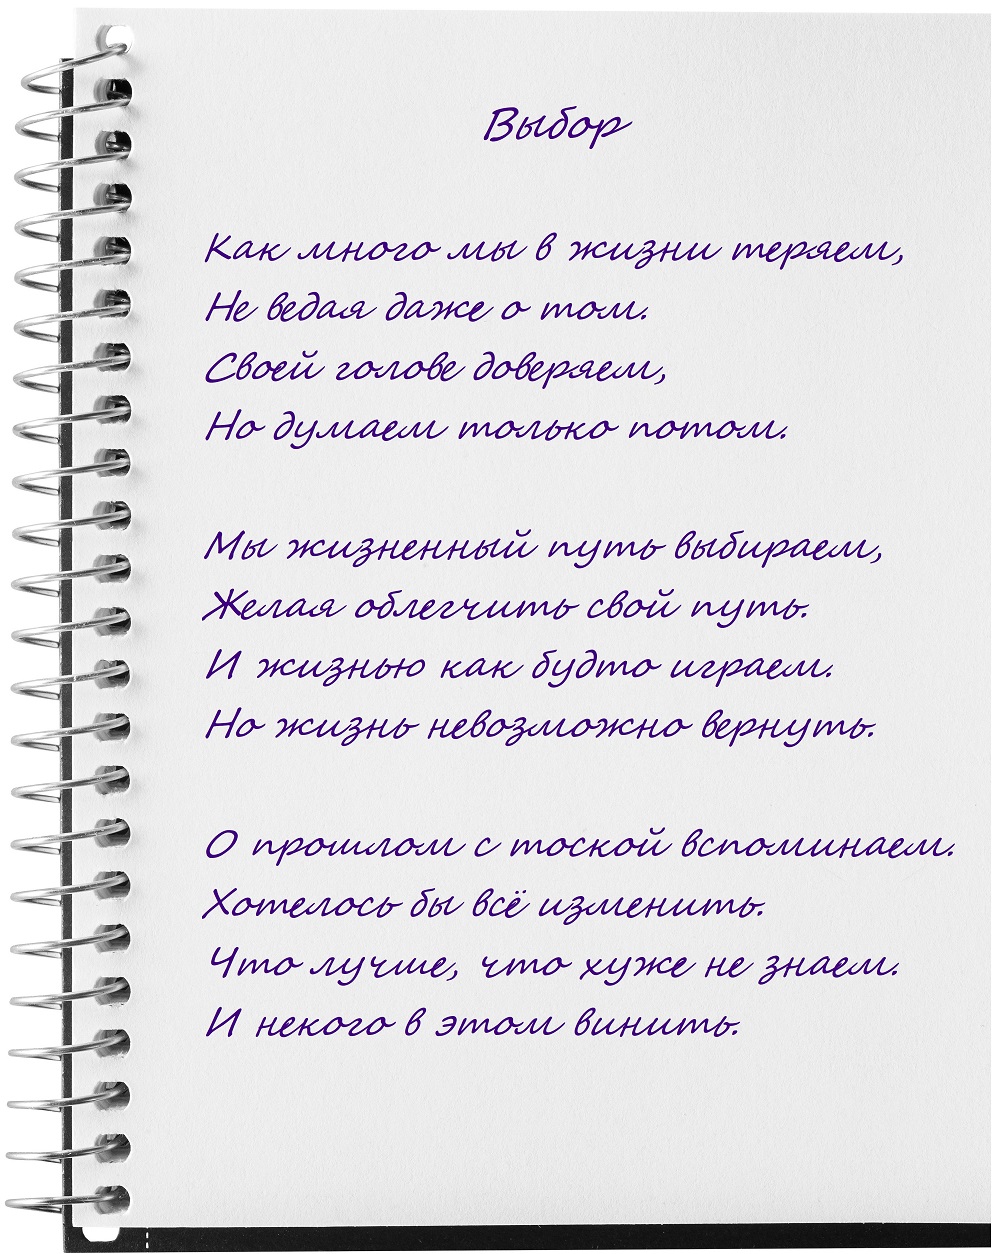 Выбор
Как много мы в жизни теряем,
Не ведая даже о том.
Своей голове доверяем,
Но думаем только потом.
Мы жизненный путь выбираем,
Желая облегчить свой путь.
И жизнью как будто играем.
Но жизнь невозможно вернуть.
О прошлом с тоской вспоминаем.
Хотелось бы всё изменить.
Что лучше, что хуже не знаем.
И некого в этом винить.